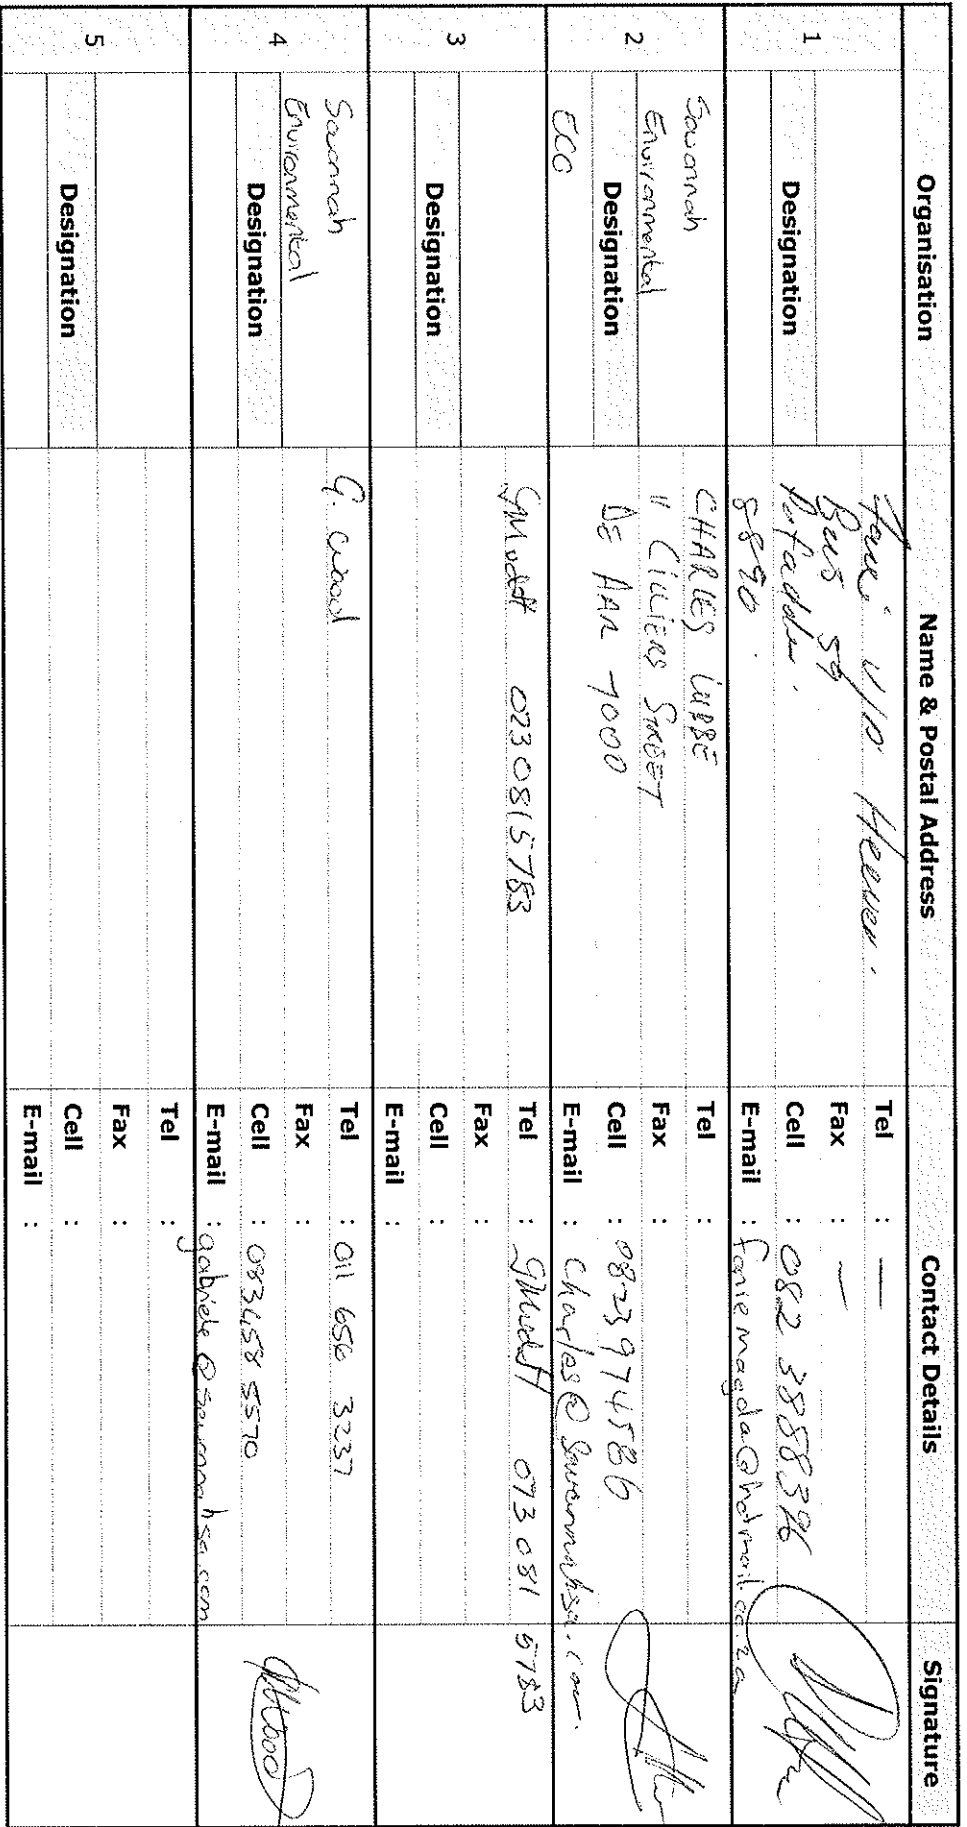 Organisation Name & Postal Address Contact Details Signature
1
Designation
v/d Heever.
Bus 59
Pofadder.
8890.
Tel : —
Fax : —
Cell : 082 3888396
E-mail : faniemagda@hotmail.co.za
2
Savannah
Environmental
Designation
ECO
CHARLES LUBBE
11 CILLIERS STREET
DE AAR 7000
Tel :
Fax :
Cell : 0823974586
E-mail : Charles@Savannahsa.com.
3
Designation
0230815783
Tel : 073 081 5783
Fax :
Cell :
E-mail :
4
Savannah
Environmental
Designation
G. Wood
Tel : 011 656 3237
Fax :
Cell : 083658 5570
E-mail : gabriele@savannahsa.com
5
Designation
Tel :
Fax :
Cell :
E-mail :